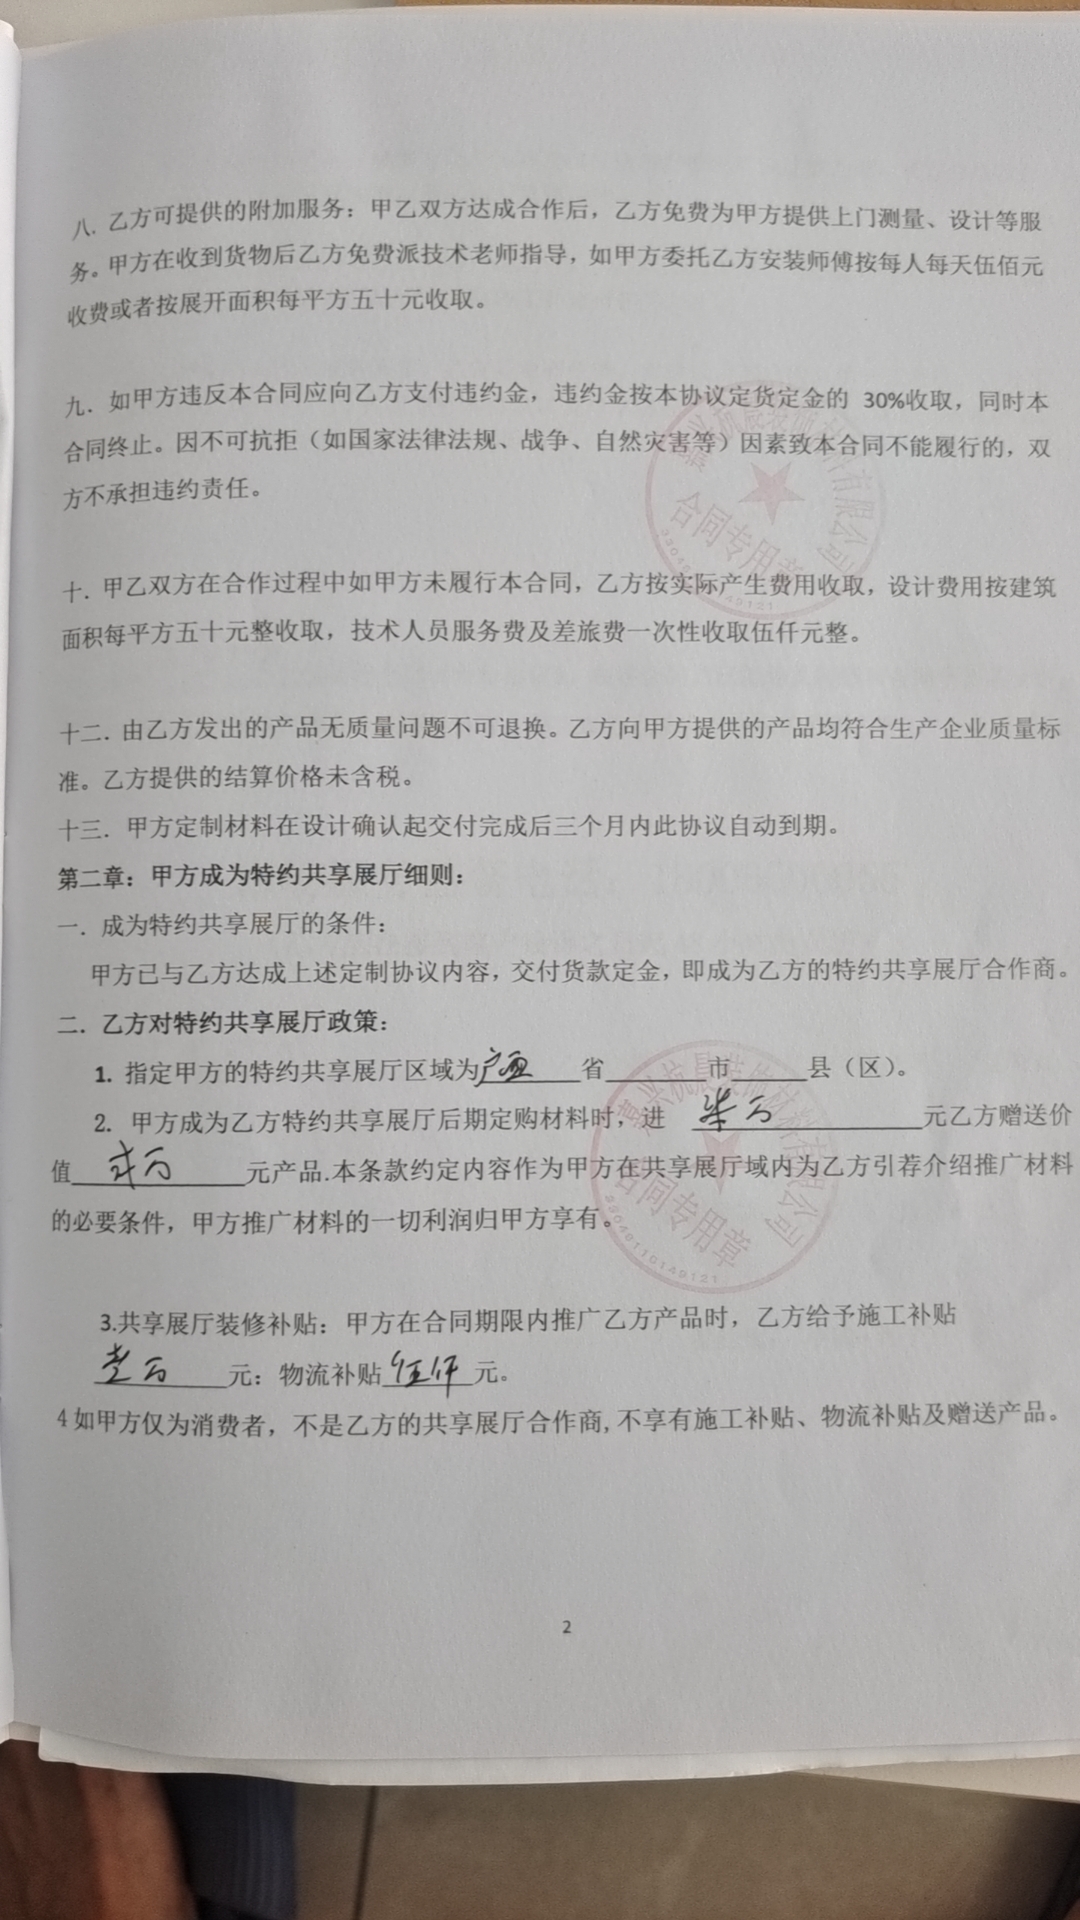 八. 乙方可提供的附加服务：甲乙双方达成合作后，乙方免费为甲方提供上门测量、设计等服
务。甲方在收到货物后乙方免费派技术老师指导，如甲方委托乙方安装师傅按每人每天伍佰元
收费或者按展开面积每平方五十元收取。
九. 如甲方违反本合同应向乙方支付违约金，违约金按本协议定货定金的 30%收取，同时本
合同终止。因不可抗拒（如国家法律法规、战争、自然灾害等）因素致本合同不能履行的，双
方不承担违约责任。
合同专用章
十. 甲乙双方在合作过程中如甲方未履行本合同，乙方按实际产生费用收取，设计费用按建筑
面积每平方五十元整收取，技术人员服务费及差旅费一次性收取伍仟元整。
十二. 由乙方发出的产品无质量问题不可退换。乙方向甲方提供的产品均符合生产企业质量标
准。乙方提供的结算价格未含税。
十三. 甲方定制材料在设计确认起交付完成后三个月内此协议自动到期。
第二章：甲方成为特约共享展厅细则：
一. 成为特约共享展厅的条件：
甲方已与乙方达成上述定制协议内容，交付货款定金，即成为乙方的特约共享展厅合作商。
二. 乙方对特约共享展厅政策：
1. 指定甲方的特约共享展厅区域为广西省 市 县（区）。
2. 甲方成为乙方特约共享展厅后期定购材料时，进 柒万 元乙方赠送价
值 贰万 元产品.本条款约定内容作为甲方在共享展厅域内为乙方引荐介绍推广材料
的必要条件，甲方推广材料的一切利润归甲方享有。
合同专用章
33048110149121
3.共享展厅装修补贴：甲方在合同期限内推广乙方产品时，乙方给予施工补贴
壹万 元：物流补贴 伍仟 元。
4如甲方仅为消费者，不是乙方的共享展厅合作商,不享有施工补贴、物流补贴及赠送产品。
2